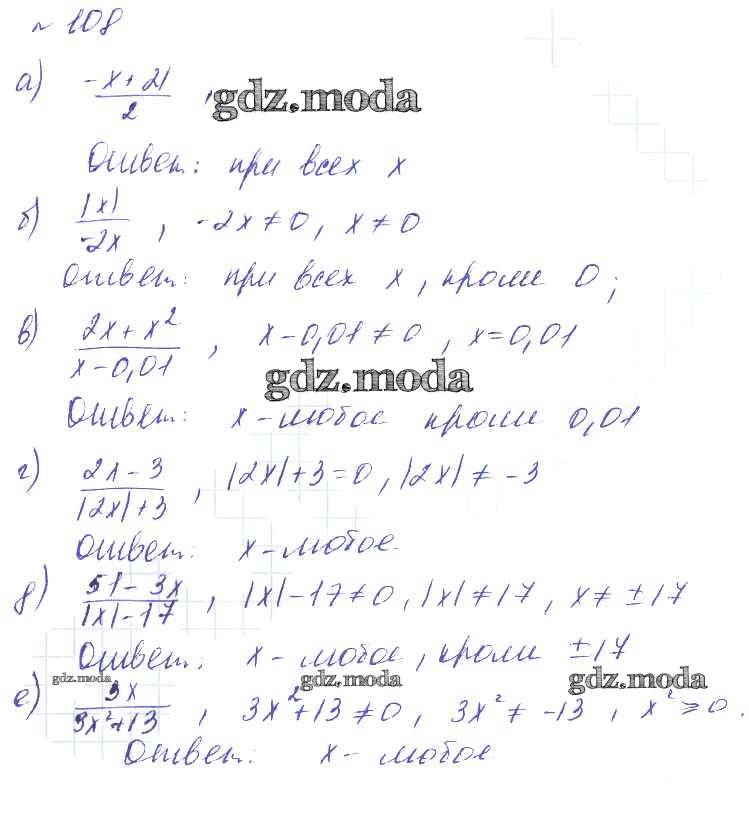 № 108
а) -x + 21 / 2 ,
gdz.moda
Ответ: при всех x
б) |x| / -2x , -2x ≠ 0, x ≠ 0
Ответ: при всех x, кроме 0;
в) 2x + x² / x - 0,01 , x - 0,01 ≠ 0, x = 0,01
gdz.moda
Ответ: x - любое кроме 0,01
г) 2x - 3 / |2x| + 3 , |2x| + 3 = 0, |2x| ≠ -3
Ответ: x - любое.
д) 51 - 3x / |x| - 17 , |x| - 17 ≠ 0, |x| ≠ 17, x ≠ ±17
Ответ: x - любое, кроме ±17
gdz.moda gdz.moda gdz.moda
е) 3x / 3x² + 13 , 3x² + 13 ≠ 0, 3x² ≠ -13, x² ≥ 0.
Ответ: x - любое